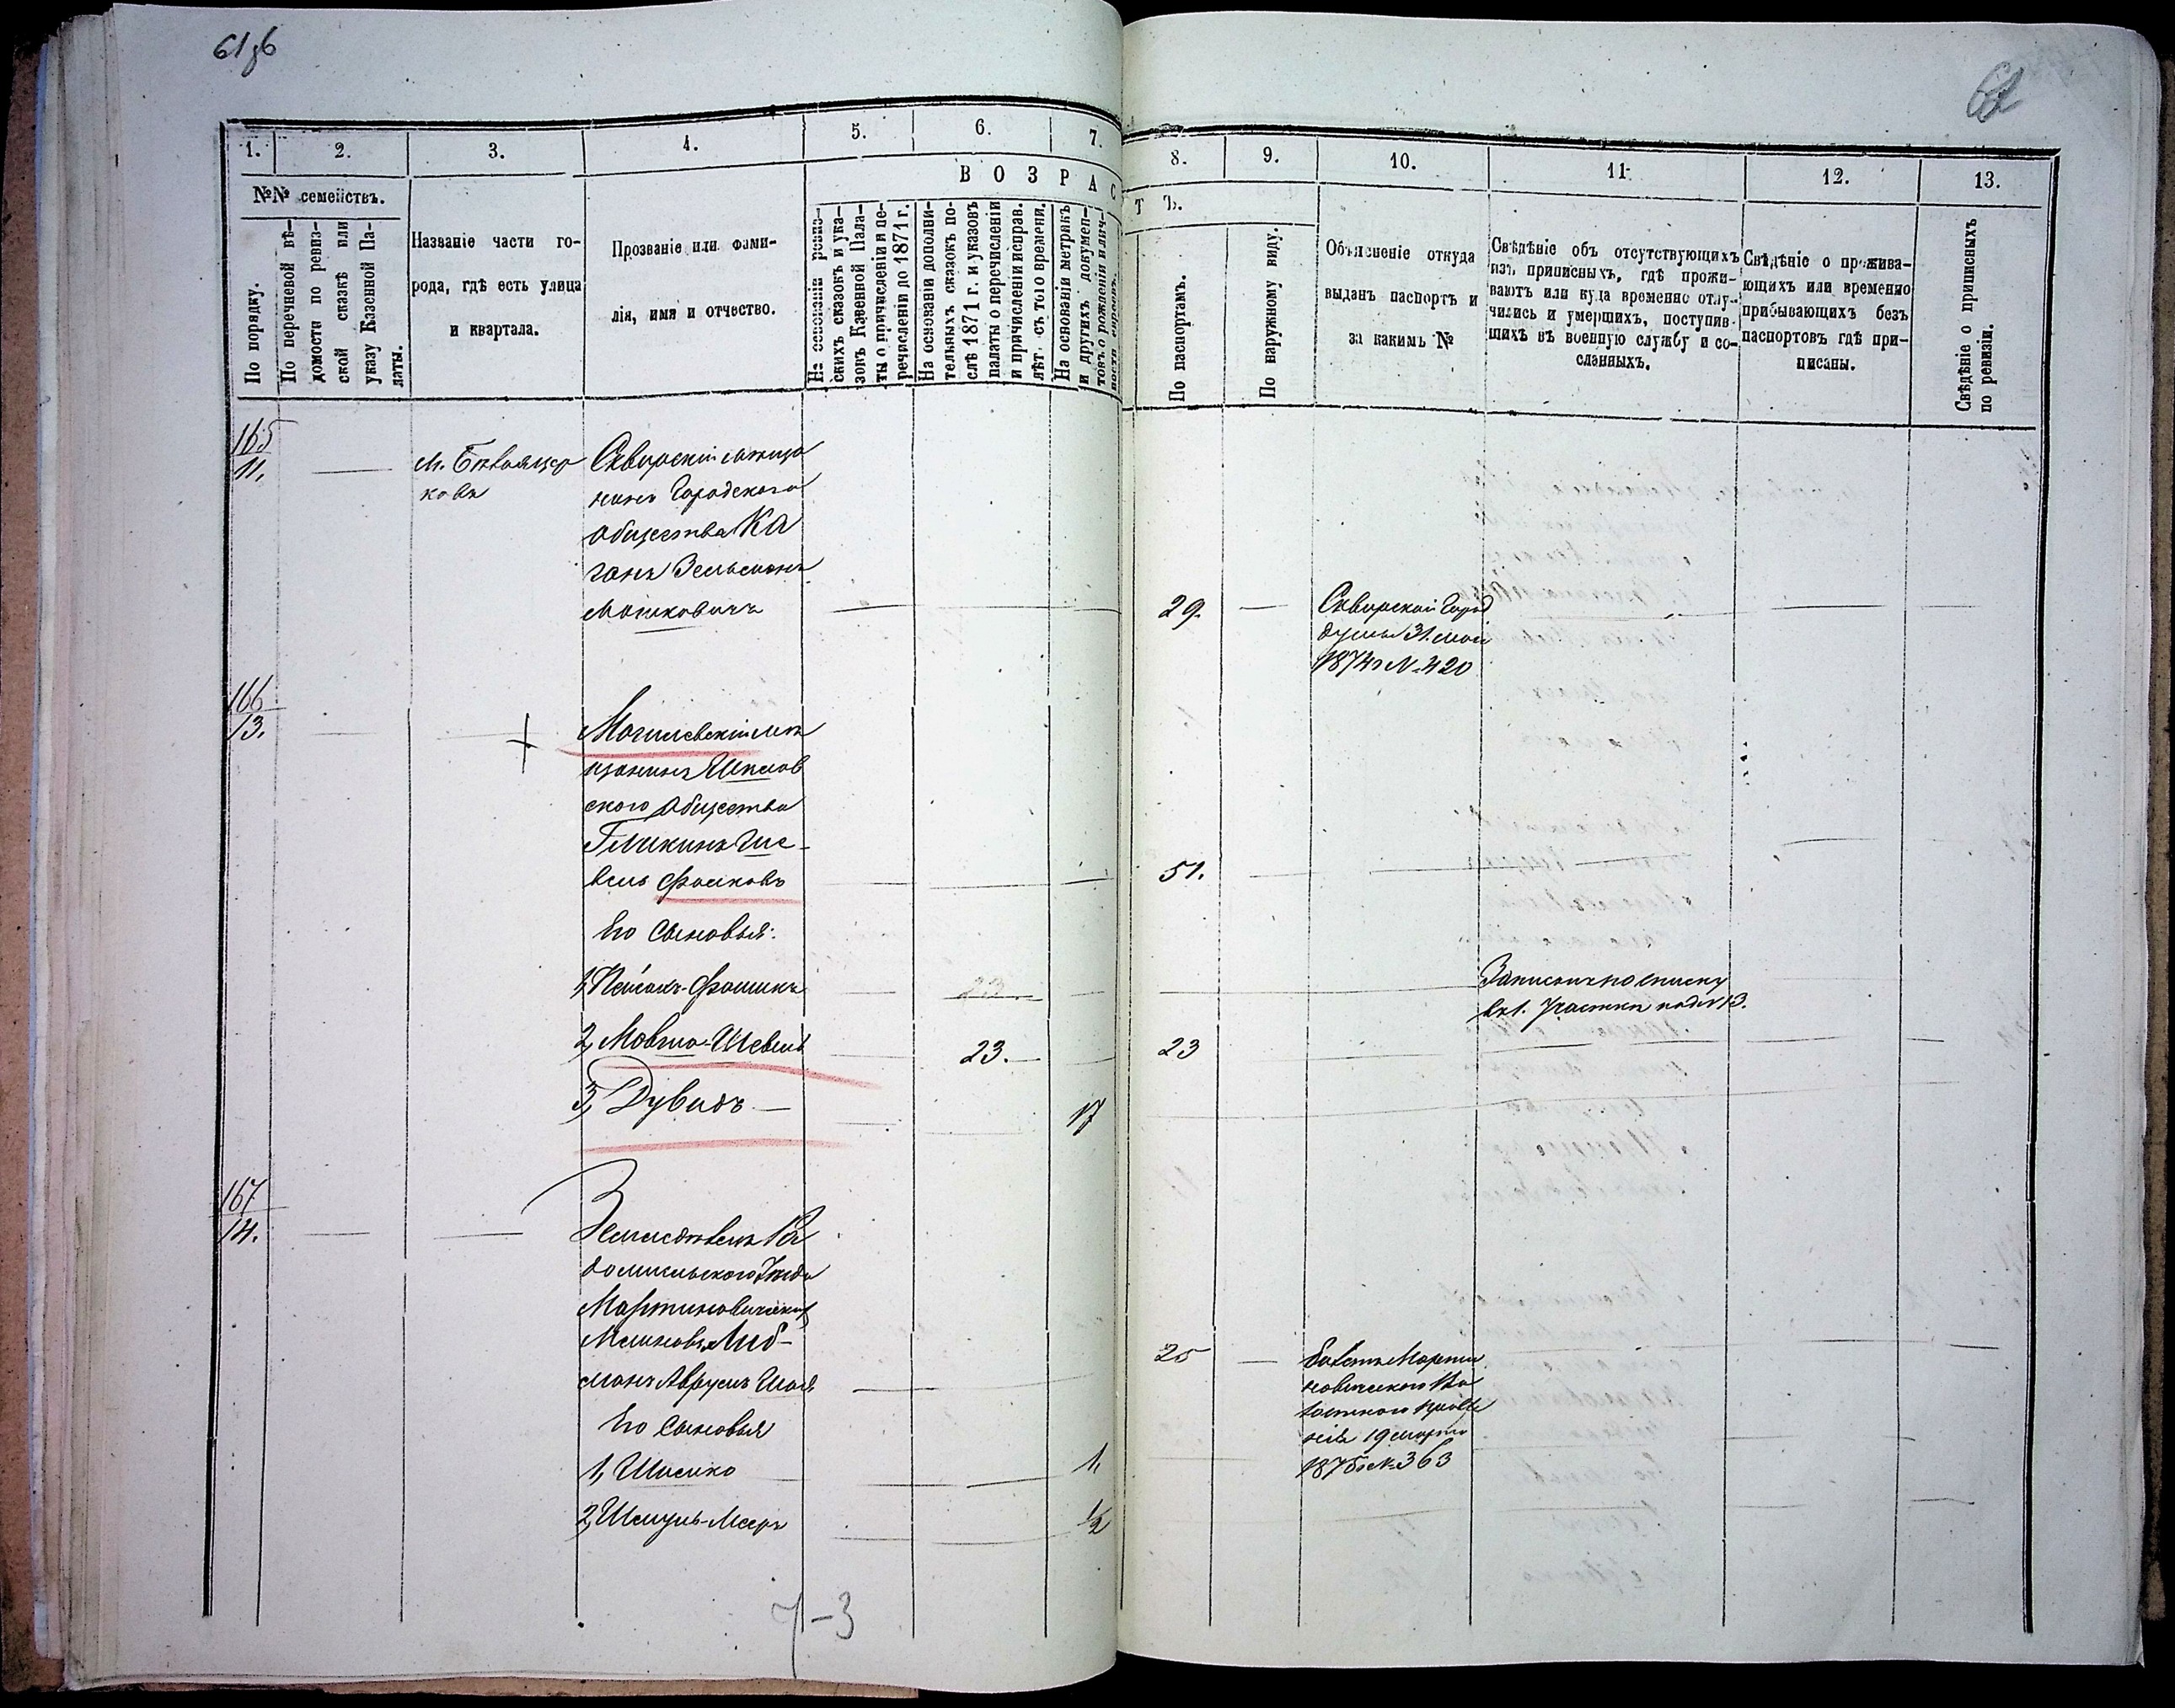 61об
62
1.
2.
3.
4.
5.
6.
7.
8.
9.
10.
11.
12.
13.
В О З Р А С
Т Ъ.
№№ семействъ.
По порядку.
По перечневой вѣ-
домости по ревиз-
ской сказкѣ или
указу Казенной Па-
латы.
Названіе части го-
рода, гдѣ есть улица
и квартала.
Прозваніе или фами-
лія, имя и отчество.
На основаніи ревиз-
скихъ сказокъ и ука-
зовъ Казенной Пала-
ты о причисленіи и пе-
речисленіи до 1871 г.
На основаніи дополни-
тельныхъ сказокъ по-
слѣ 1871 г. и указовъ
палаты о перечисленіи
и причисленіи исправ.
лѣт. съ того времени.
На основаніи метрикъ
и другихъ докумен-
товъ о рожденіи и лич-
ности евреевъ.
По паспортамъ.
По наружному виду.
Объясненіе откуда
выданъ паспортъ и
за какимъ №
Свѣдѣніе объ отсутствующихъ
изъ приписныхъ, гдѣ прожи-
ваютъ или куда временно отлу-
чились и умершихъ, поступив-
шихъ въ военную службу и со-
сланныхъ.
Свѣдѣніе о прожива-
ющихъ или временно
прибывающихъ безъ
паспортовъ гдѣ при-
писаны.
Свѣдѣніе о приписныхъ
по ревизіи.
165
11.
м. Бѣлаяцер
ковь
Сквирскій мѣща
нинъ Городского
общества Ка
ганъ Зельманъ
Мошковичъ
29.
Сквирской Город
думы 31. мая
1874 г № 420
166
13.
Могилевскій мѣ
щанинъ Шклов
ского общества
Гликинъ Ше-
вель Фаиковъ
51.
Его сыновья:
1, Пейсахъ-Фаишъ
23.
Записанъ по списку
въ 1. Участкѣ подъ № 13.
2, Мовша-Шевель
23.
23
3, Дувидъ —
17
167
14.
Земледѣлецъ Ра
домысльского Уѣзда
Мартиновичской
Аврумъ
25
Билетъ Марти
новичского Во
лостного правле
нія 19 марта
1875 г № 363
Его сыновья
1, Шимко
1,
2, Шмуль-Мееръ
½
7-3